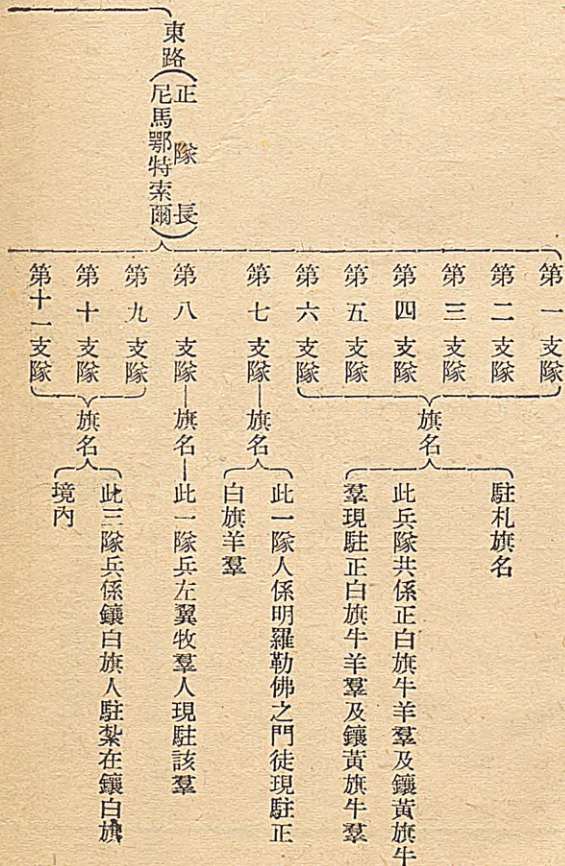 東路（正隊長
尼馬鄂特索爾）
第一支隊
第二支隊
第三支隊
第四支隊
第五支隊
第六支隊
旗名
駐札旗名
此兵隊共係正白旗牛羊羣及鑲黃旗牛
羣現駐正白旗牛羊羣及鑲黃旗牛羣
第七支隊
旗名
此一隊人係明羅勒佛之門徒現駐正
白旗羊羣
第八支隊
旗名
此一隊兵左翼牧羣人現駐該羣
第九支隊
第十支隊
第十一支隊
旗名
此三隊兵係鑲白旗人駐紮在鑲白旗
境內